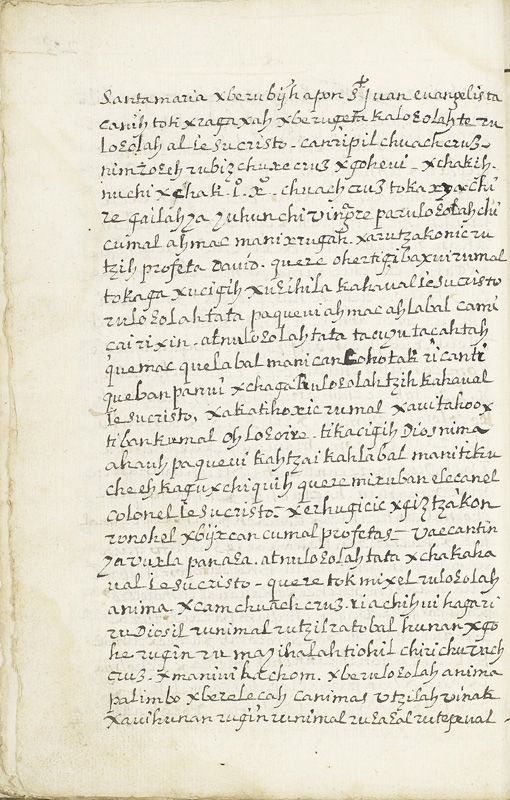 Santa maria xberubijh apon S.t Juan euangelista
canih tok xragaxah xberugeta kaloɛolahte ru
loɛolah al Iesu cristo - canripil chuach cruz -
nimɛoɛeh rubiz chuxe cruz xgoheui - xchakih.
nuchi xchak I. X. - chuach cruz toka xpx chi
re gailah ya yuhunchi vinqre paruloɛolah chi
cumal ahmac mani xrugan. xarutzakonic ru
tzih profeta Dauid. quere ohertigiba xuirumal
tokaga xucigih xuɛihila kahaual Iesu cristo
ruloɛolah tata paqueui ahmac ahlabal cami
cairixin. atnuloɛolah tata tacuyutacahtah
quemac quelabal mani can Cohotak ri canti
queban panui xchaga Ruloɛolah tzih kahaual
Iesu cristo, xakatihoxic rumal xauitahoox
tiban kumal oh loɛoire. tikacigih Dios nima
ahauh paqueui kahtzai kahlabal mani tiku
cheeh kagux chiquih quere mi xuban elecanel
colonel Iesu cristo - xerhugicic xgiztzakon
ronohel xbijxcan cumal profetas - vaecantin
ya vuxla panaɛa. atnuloɛolah tata xchakaha
ual Iesu cristo - quere tok mixel ruloɛolah
anima. xcam chuach cruz. ria chihui hagari
ru Diosil runimal rutzil ratobal hunan xgo
he rugin ru mayihalah tiohil chirichuuach
cruz. xmaniui katchom. xberuloɛolah anima
palimbo xberelecah canimas vtzilah vinak
xauihunan rugin runimal ruɛaɛal rutepeual -